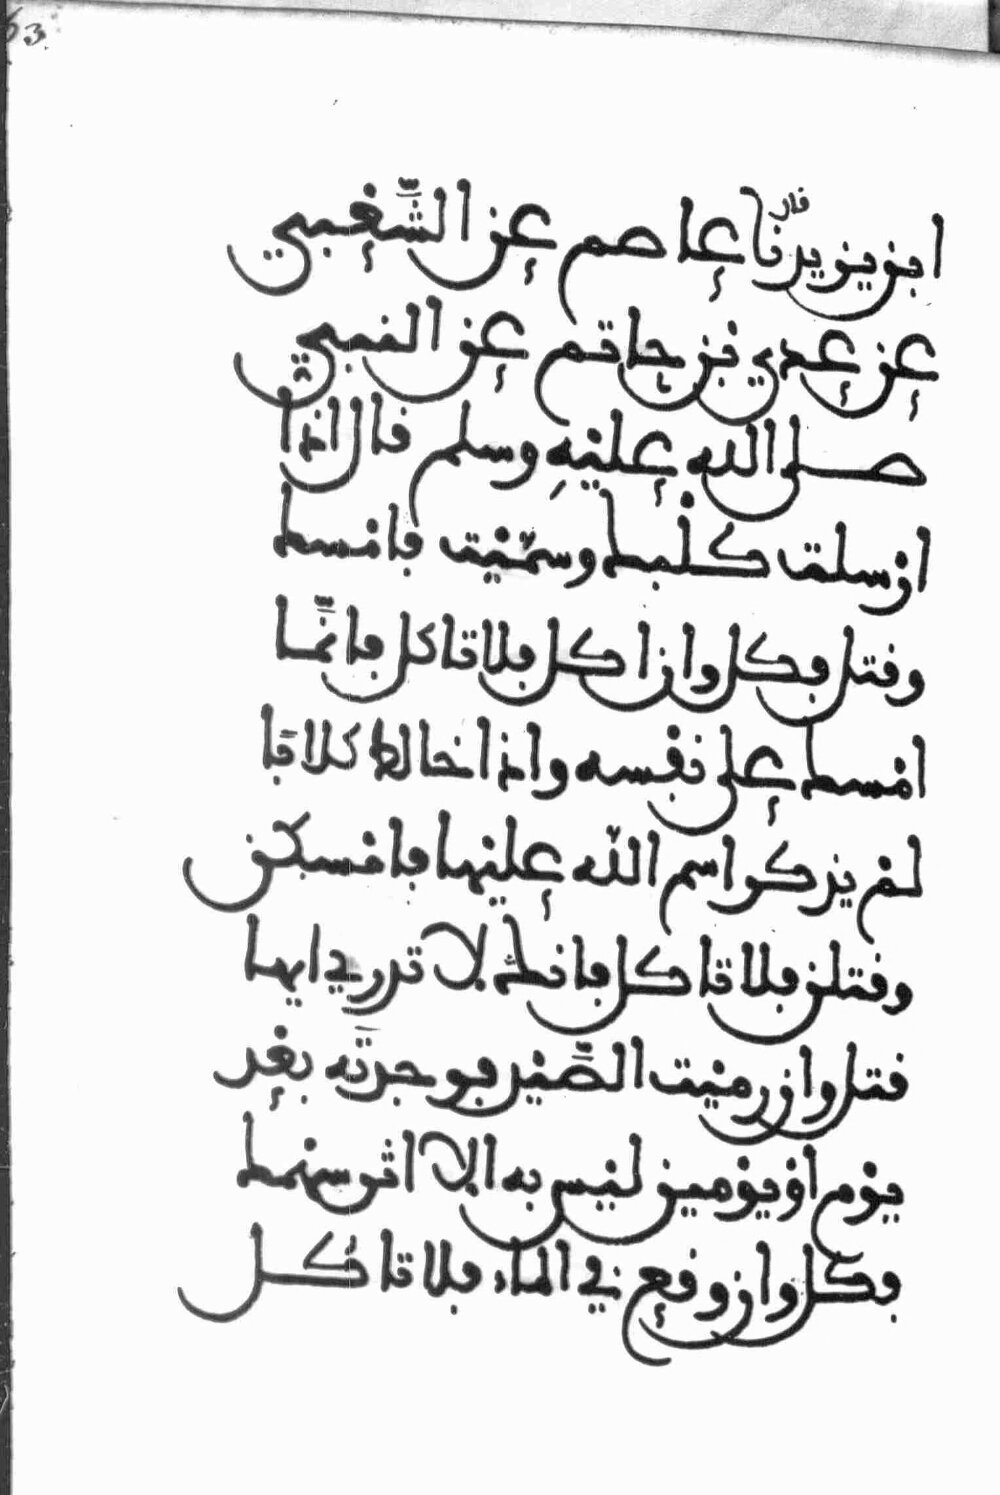 قال
ابن يزيد نا عاصم عن الشعبي
عن عدي بن حاتم عن النبي
صلى الله عليه وسلم قال اذا
ارسلت كلبك وسميت فامسك
وقتل فكل وان اكل فلا تاكل فانما
امسك على نفسه واذا خالط كلابا
لم يذكر اسم الله عليها فامسكن
وقتلن فلا تاكل فانك لا تدري ايها
قتل وان رميت الصيد فوجدته بعد
يوم او يومين ليس به الا اثر سهمك
فكل وان وقع في الماء فلا تاكل